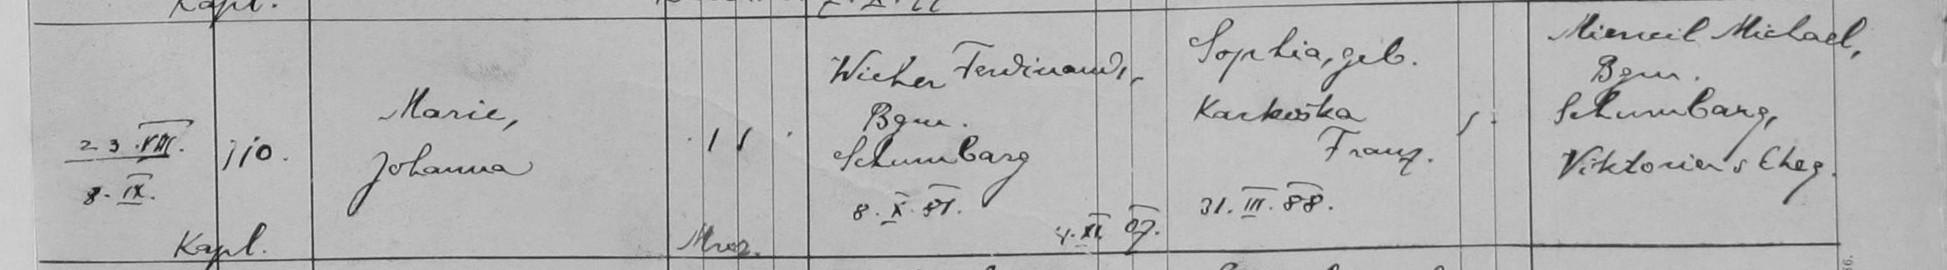 Kapl.
23.VIII.
8.IX.
110.
Marie,
Johanna
Wicher Ferdinand,
Bgm.
Schumbarg
8.X.81.
4.XI.07.
Sophia, geb.
Karkoška
Franz.
31.III.88.
Michael,
Bgm.
Schumbarg,
Viktoria s Eheg.
Kapl.
Mroz.